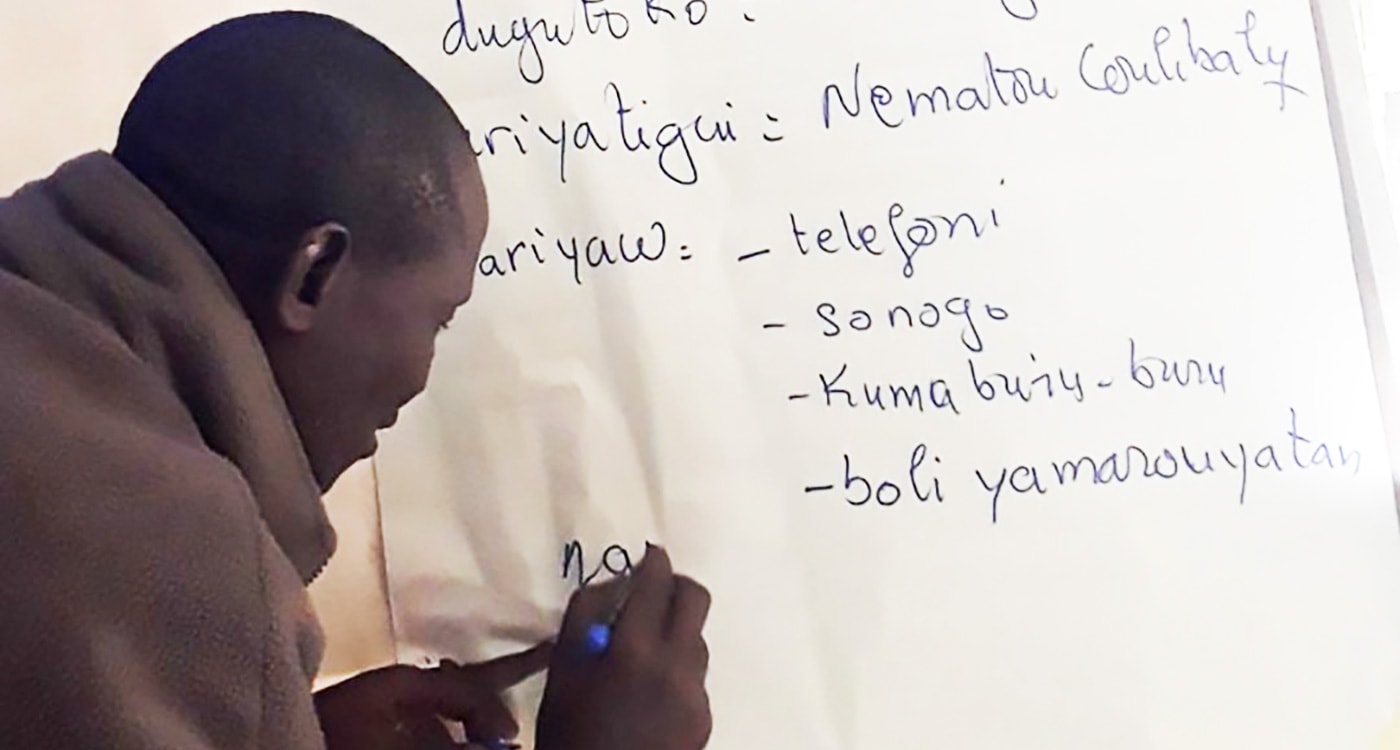 dugutoko.
riyatigui: Nematou Coulibaly
ariyaw: - telefoni
- sonogo
- Kuma buru-buru
- boli yamarouyatan
na